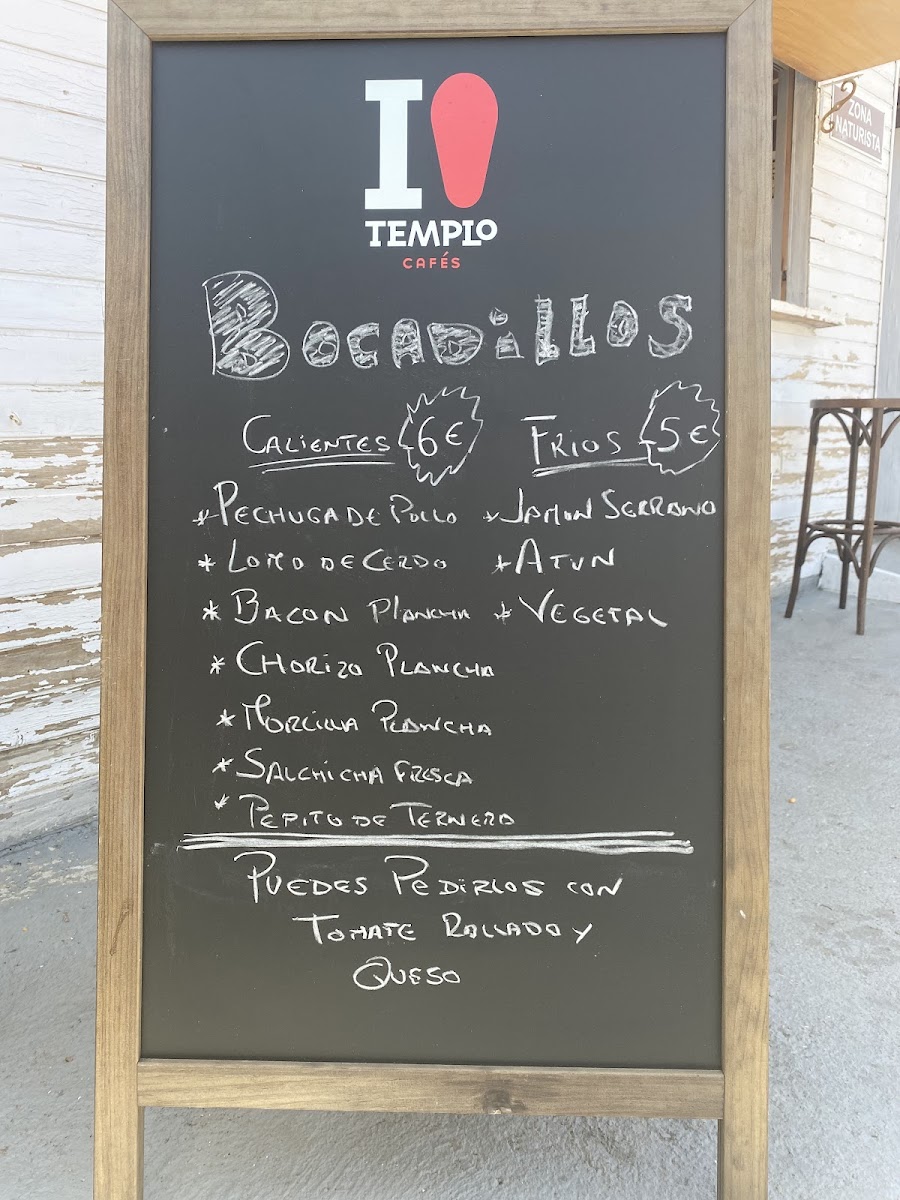 I
TEMPLO
CAFÉS
BOCADiLLOS
CALIENTES 6€
* PECHUGA DE POLLO
* LOMO DE CERDO
* BACON PLANCHA
* CHORIZO PLANCHA
* MORCILLA PLANCHA
* SALCHICHA FRESCA
* PEPITO DE TERNERA
FRIOS 5€
* JAMON SERRANO
* ATUN
* VEGETAL
PUEDES PEDIRLOS CON
TOMATE RALLADO Y
QUESO
ZONA
NATURISTA